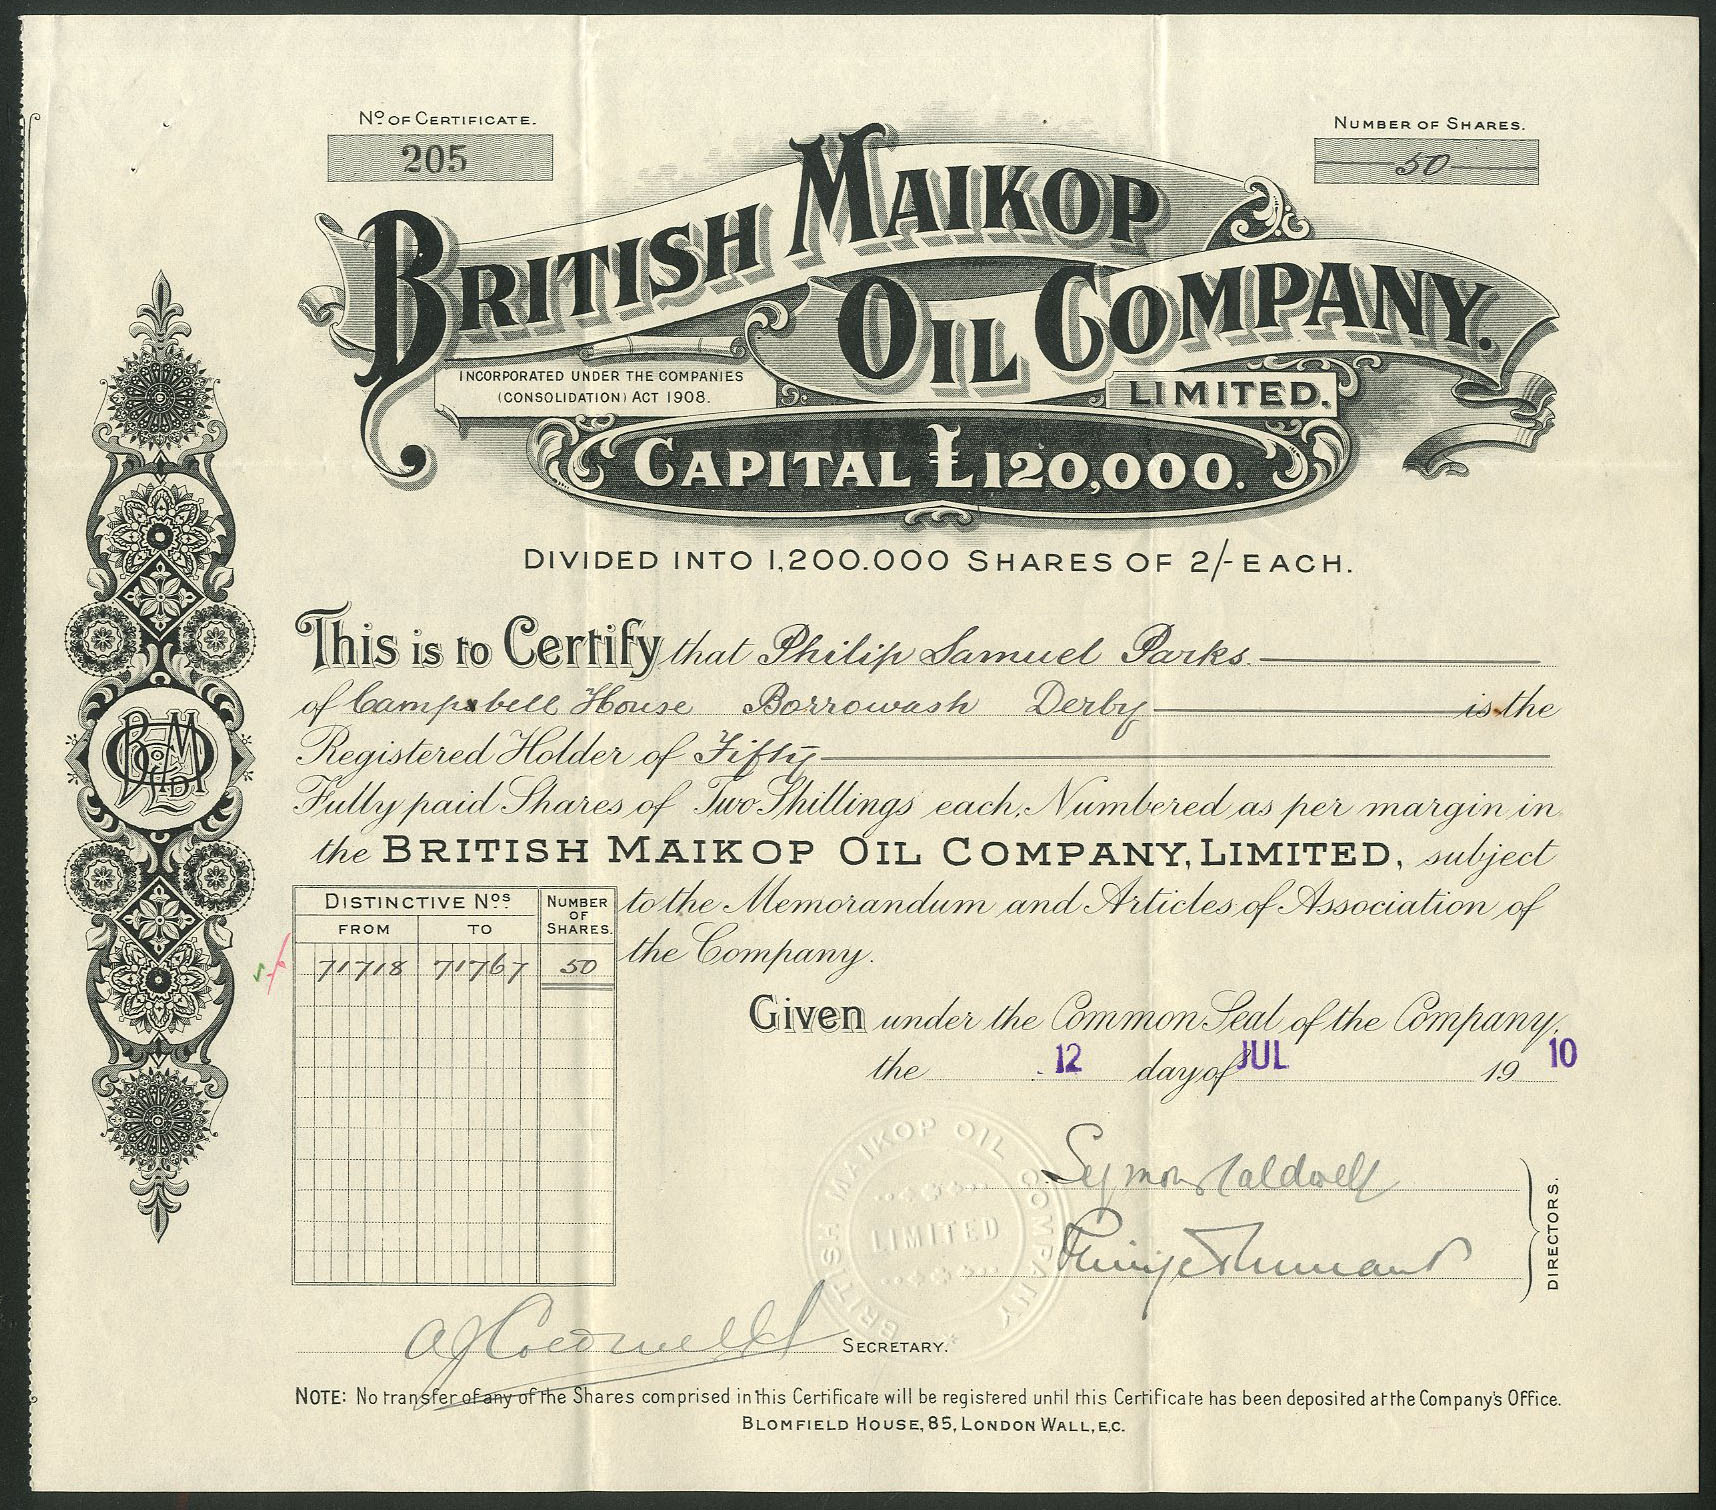 Nº OF CERTIFICATE.
205
NUMBER OF SHARES.
50
BRITISH MAIKOP
OIL COMPANY.
LIMITED.
INCORPORATED UNDER THE COMPANIES
(CONSOLIDATION) ACT 1908.
CAPITAL £120,000.
DIVIDED INTO 1,200.000 SHARES OF 2/- EACH.
This is to Certify that Philip Samuel Parks
of Campbell House Borrowash Derby is the
Registered Holder of Fifty
Fully paid Shares of Two Shillings each, Numbered as per margin in
the BRITISH MAIKOP OIL COMPANY, LIMITED, subject
to the Memorandum and Articles of Association of
the Company.
DISTINCTIVE Nºs
NUMBER OF SHARES.
FROM TO
71718 71767 50
Given under the Common Seal of the Company,
the 12 day of JUL 1910
BRITISH MAIKOP OIL COMPANY
LIMITED
DIRECTORS.
SECRETARY.
NOTE: No transfer of any of the Shares comprised in this Certificate will be registered until this Certificate has been deposited at the Company's Office.
BLOMFIELD HOUSE, 85, LONDON WALL, E.C.